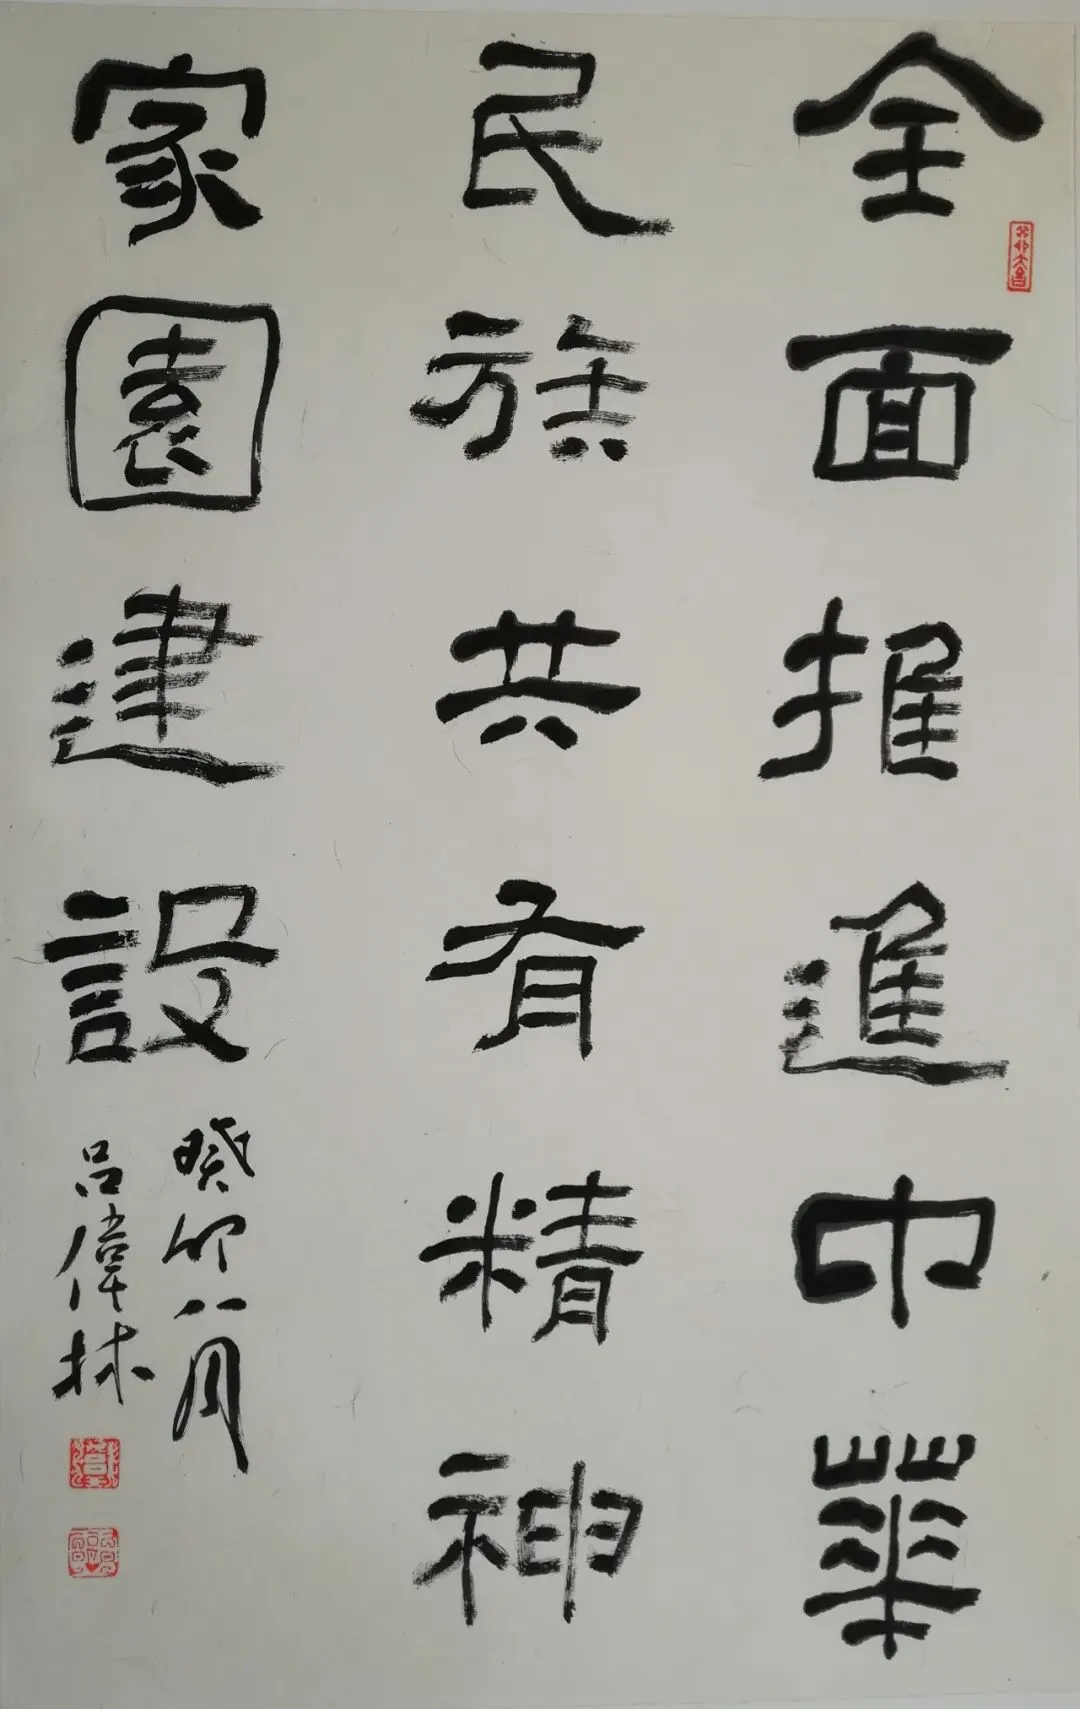 全面推進中華
民族共有精神
家園建設
癸卯八月
吕偉林